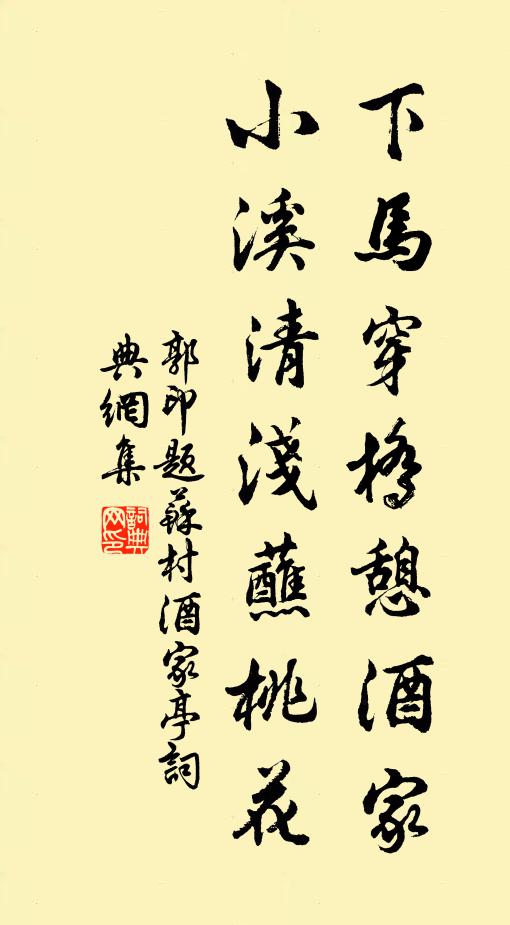 下馬穿橋憩酒家
小溪清淺蘸桃花
郭印題蘇村酒家亭詞
典網集
詞典
网印